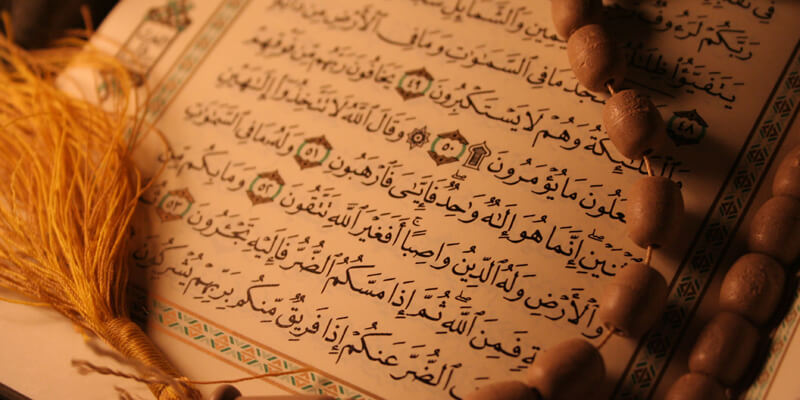 رَبَّكُمْ
يَتَفَيَّؤُا۟ ظِلَٰلُهُ ٱلْيَمِينِ وَٱلشَّمَآئِلِ
٤٨ مَا فِى ٱلسَّمَٰوَٰتِ وَمَا فِى ٱلْأَرْضِ مِن دَآبَّةٍ
وَٱلْمَلَٰٓئِكَةُ وَهُمْ لَا يَسْتَكْبِرُونَ ٤٩ يَخَافُونَ رَبَّهُم مِّن فَوْقِهِمْ
وَيَفْعَلُونَ مَا يُؤْمَرُونَ ۩ ٥٠ ۞ وَقَالَ ٱللَّهُ لَا تَتَّخِذُوٓا۟ إِلَٰهَيْنِ
ٱثْنَيْنِ ۖ إِنَّمَا هُوَ إِلَٰهٌ وَٰحِدٌ ۖ فَإِيَّٰىَ فَٱرْهَبُونِ ٥١ وَلَهُۥ مَا فِى ٱلسَّمَٰوَٰتِ
وَٱلْأَرْضِ وَلَهُ ٱلدِّينُ وَاصِبًا ۚ أَفَغَيْرَ ٱللَّهِ تَتَّقُونَ ٥٢ وَمَا بِكُم مِّن
فَمِنَ ٱللَّهِ ۖ ثُمَّ إِذَا مَسَّكُمُ ٱلضُّرُّ فَإِلَيْهِ تَجْـَٔرُونَ ٥٣
ٱلضُّرَّ عَنكُمْ إِذَا فَرِيقٌ مِّنكُم بِرَبِّهِمْ يُشْرِكُونَ